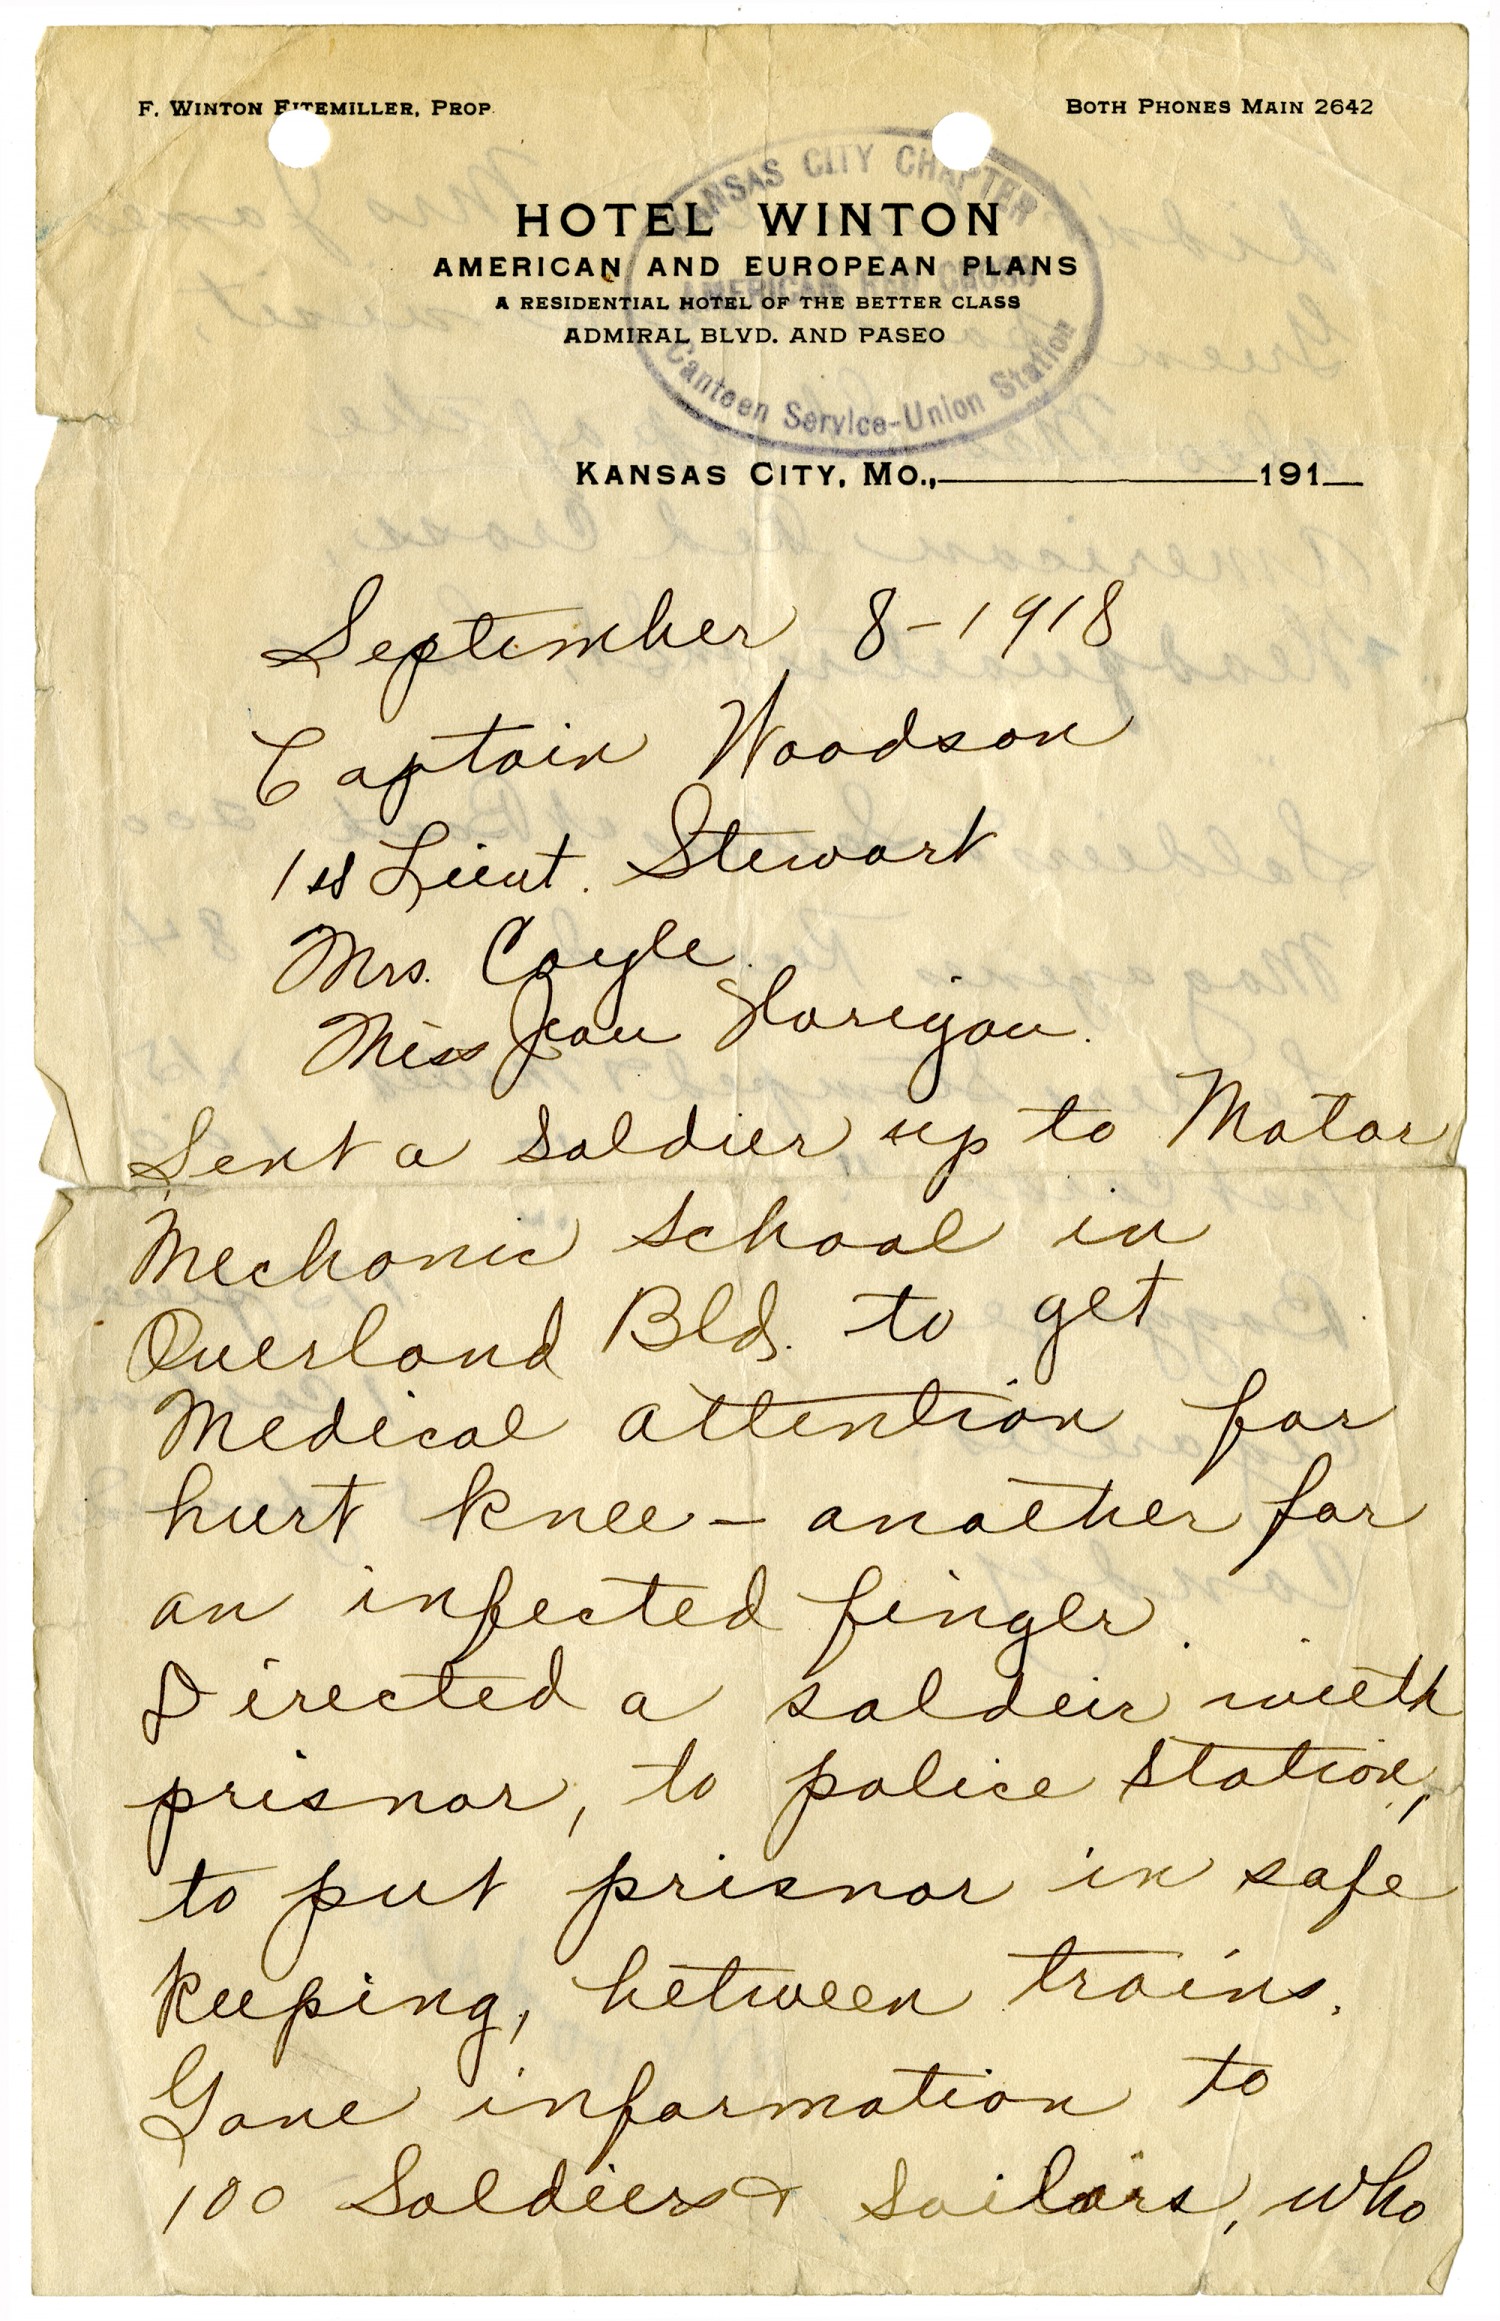 F. WINTON EITEMILLER, PROP.
BOTH PHONES MAIN 2642
KANSAS CITY CHAPTER
AMERICAN RED CROSS
Canteen Service-Union Station
HOTEL WINTON
AMERICAN AND EUROPEAN PLANS
A RESIDENTIAL HOTEL OF THE BETTER CLASS
ADMIRAL BLVD. AND PASEO
KANSAS CITY, MO., 191
September 8-1918
Captain Woodson
1st Lieut. Stewart
Mrs. Coyle.
Miss Jean Horigan.
Sent a soldier up to Motor
Mechanic school in
Overland Bld. to get
Medical attention for
hurt knee – another for
an infected finger.
Directed a soldeir with
prisnor, to police station,
to put prisnor in safe
keeping, between trains.
Gave information to
100 Soldiers & Sailors, who